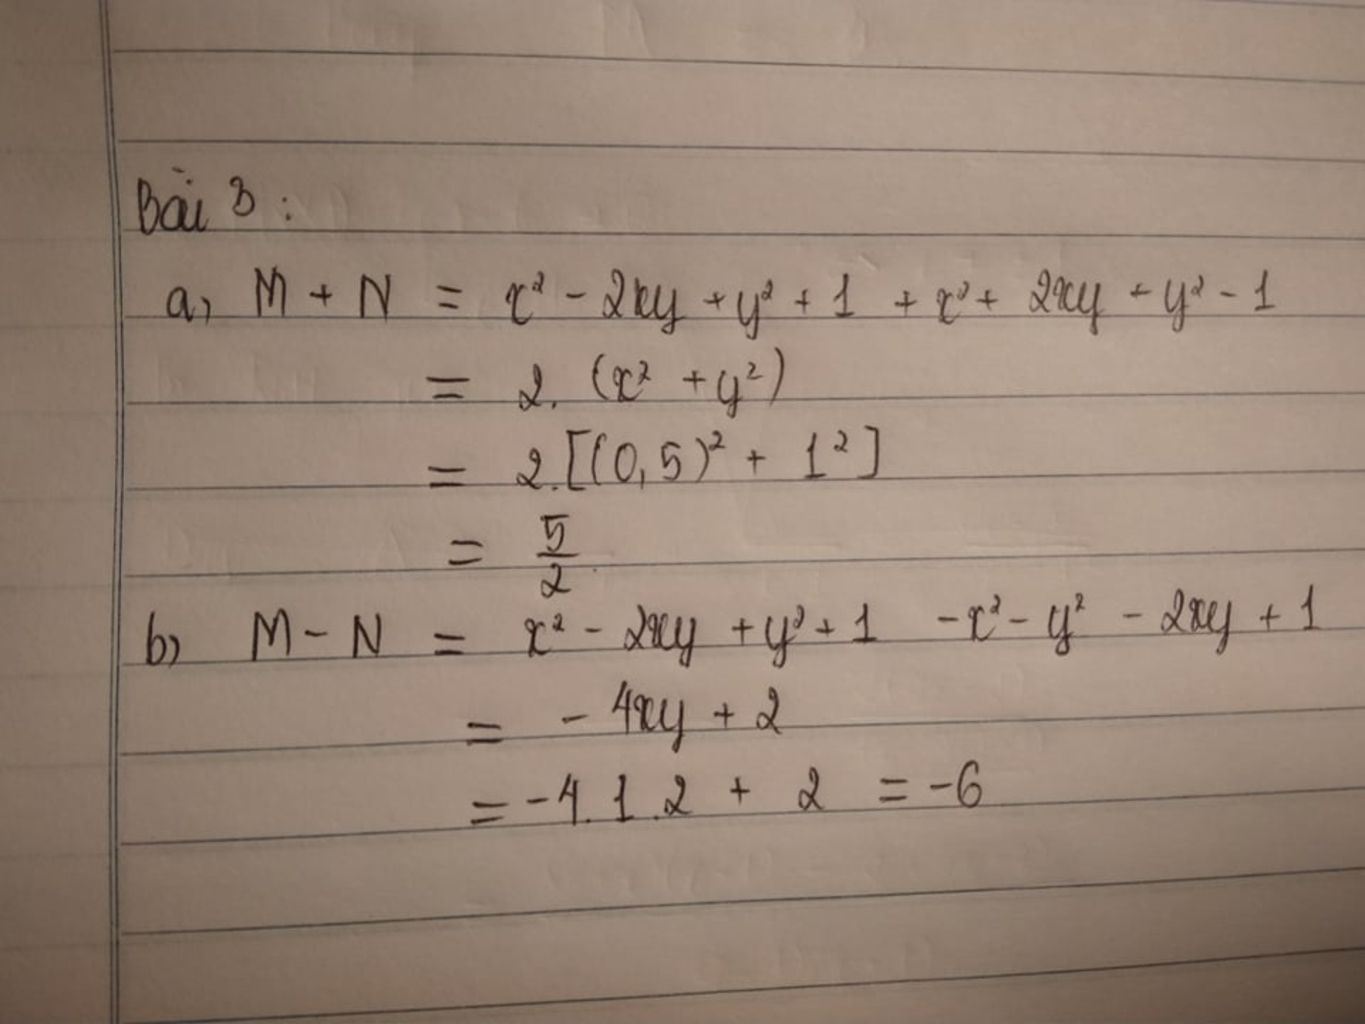 Bài 3 :
a, M + N = x² - 2xy + y² + 1 + x² + 2xy + y² - 1
= 2. (x² + y²)
= 2.[(0,5)² + 1²]
= 5/2
b, M - N = x² - 2xy + y² + 1 - x² - y² - 2xy + 1
= - 4xy + 2
= -4.1.2 + 2 = -6